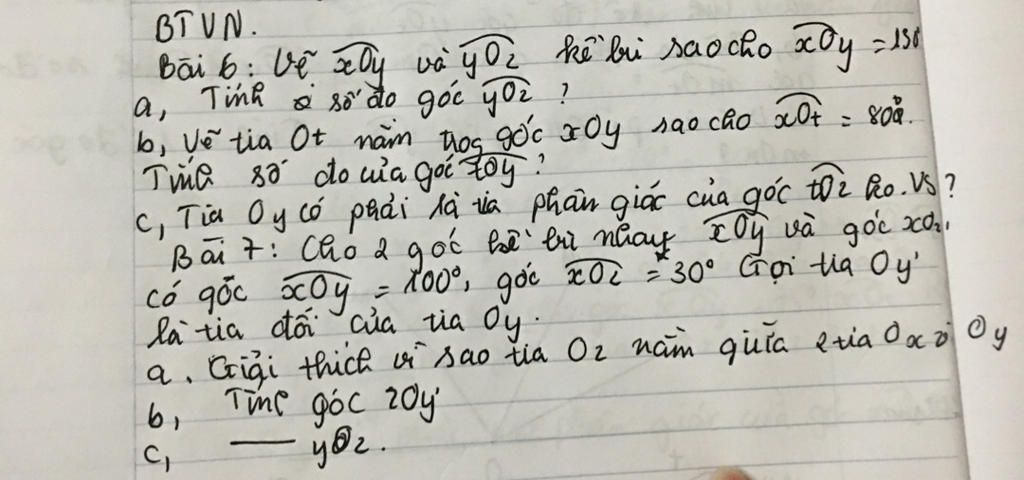 BTVN.
Bài 6: Vẽ xOy và yOz kề bù sao cho xOy = 130
a, Tính số đo góc yOz ?
b, Vẽ tia Ot nằm trog góc xOy sao cho xOt = 80º.
Tính số đo của góc tOy ?
c, Tia Oy có phải là tia phân giác của góc tOz ko. VS ?
Bài 7: Cho 2 góc kề bù nhau xOy và góc xOz,
có góc xOy = 100°, góc xOz = 30° Gọi tia Oy'
là tia đối của tia Oy.
a. Giải thích vì sao tia Oz nằm giữa 2 tia Ox và Oy
b, Tính góc zOy'
c, — yOz.